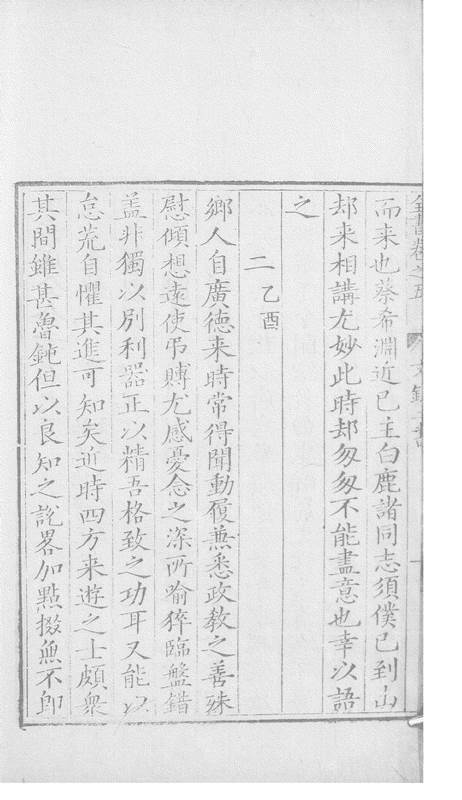 全書卷之五
而来也蔡希淵近已主白鹿諸同志須僕已到山
却来相講尤妙此時却匆匆不能盡意也幸以語
之
二 乙酉
鄉人自廣德来時常得聞動履兼悉政教之善殊
慰傾想遠使弔賻尤感憂念之深所喻猝臨盤錯
盖非獨以別利器正以精吾格致之功耳又能以
怠荒自懼其進可知矣近時四方来遊之士頗衆
其間雖甚魯鈍但以良知之說畧加點掇無不即